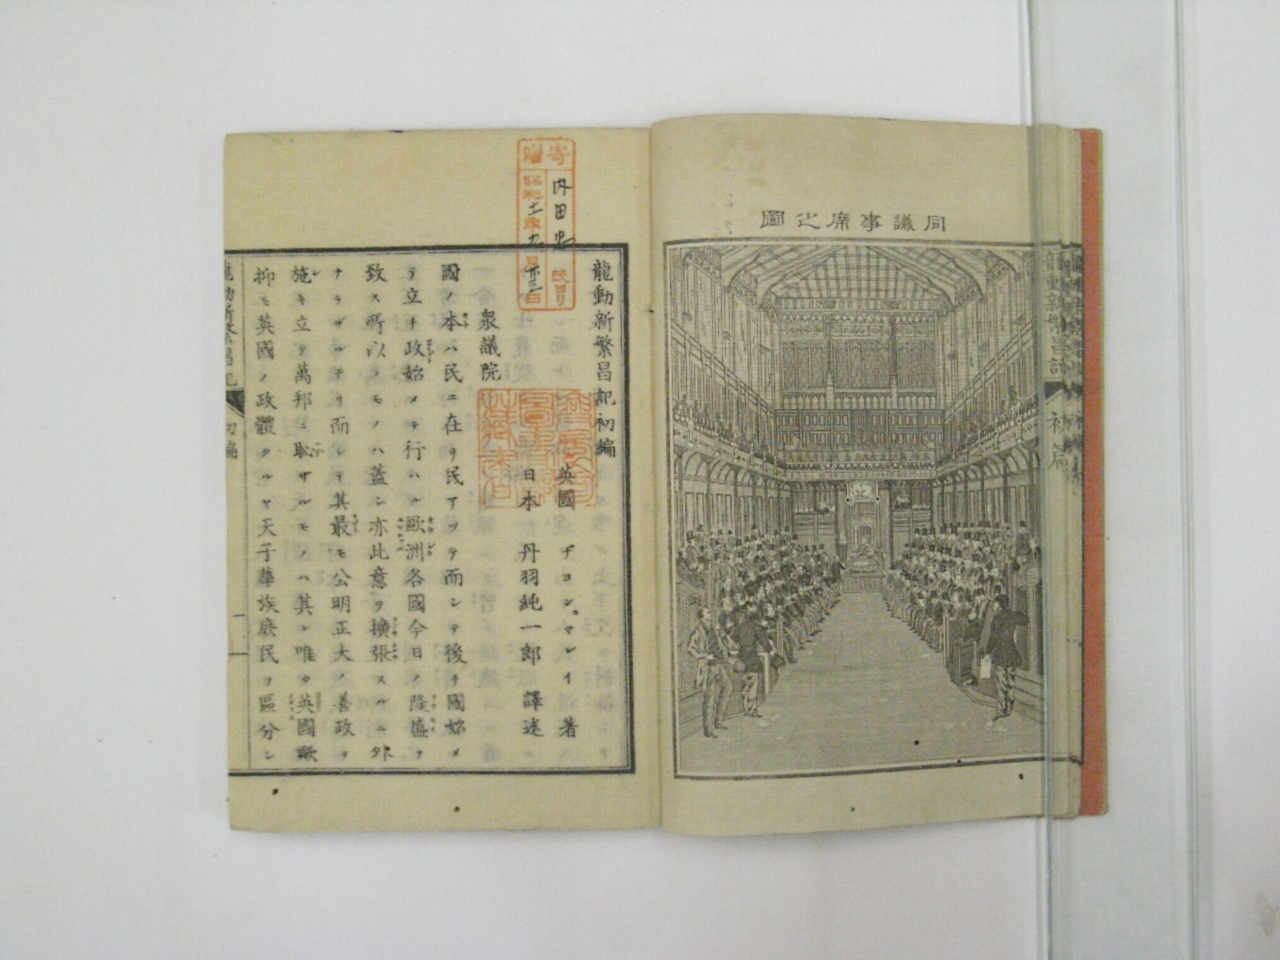 同議事席之圖
龍動新繁昌記初編
英國 ヂヨン、マレイ 著
日本 丹羽純一郎 譯述
衆議院
國ノ本ハ民ニ在リ民アツテ而シテ後チ國始メ
テ立チ政始メテ行ハル歐洲各國今日ノ隆盛ヲ
致ス所以ノモノハ蓋シ亦此意ヲ擴張スルニ外
ナラザルナリ而シテ其最モ公明正大ノ善政ヲ
施キ立テ萬邦ニ恥ザルモノハ其レ唯タ英國歟
抑モ英國ノ政體タルヤ天子華族庶民ヲ區分シ
龍動新繁昌記 初編
一
寄贈
内田 氏ヨリ
初篇